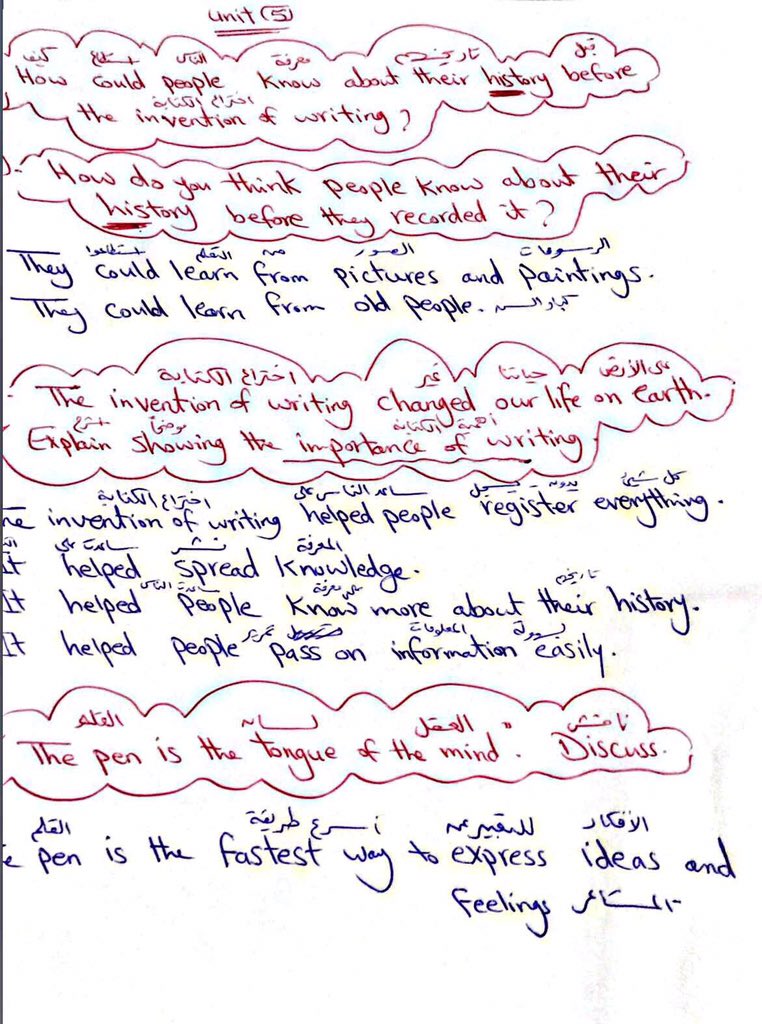 unit (5)
كيف استطاع الناس معرفة تاريخهم قبل
How could people know about their history before
اختراع الكتابة
the invention of writing?
How do you think people know about their
history before they recorded it?
استطاعوا التعلم من الصور الرسومات
They could learn from pictures and paintings.
They could learn from old people. كبار السن
اختراع الكتابة غير حياتنا على الأرض
The invention of writing changed our life on earth.
اشرح موضحاً أهمية الكتابة
Explain showing the importance of writing
اختراع الكتابة ساعد الناس على يسجل كل شيئ
invention of writing helped people register everything.
ساعدت على نشر المعرفة
It helped spread knowledge.
ساعدت الناس على معرفة تاريخهم
It helped people know more about their history.
تمرير المعلومات بسهولة
It helped people pass on information easily.
القلم لسان العقل ناقش
The pen is the tongue of the mind". Discuss.
القلم أسرع طريقة للتعبير عن الأفكار
pen is the fastest way to express ideas and
feelings المشاعر